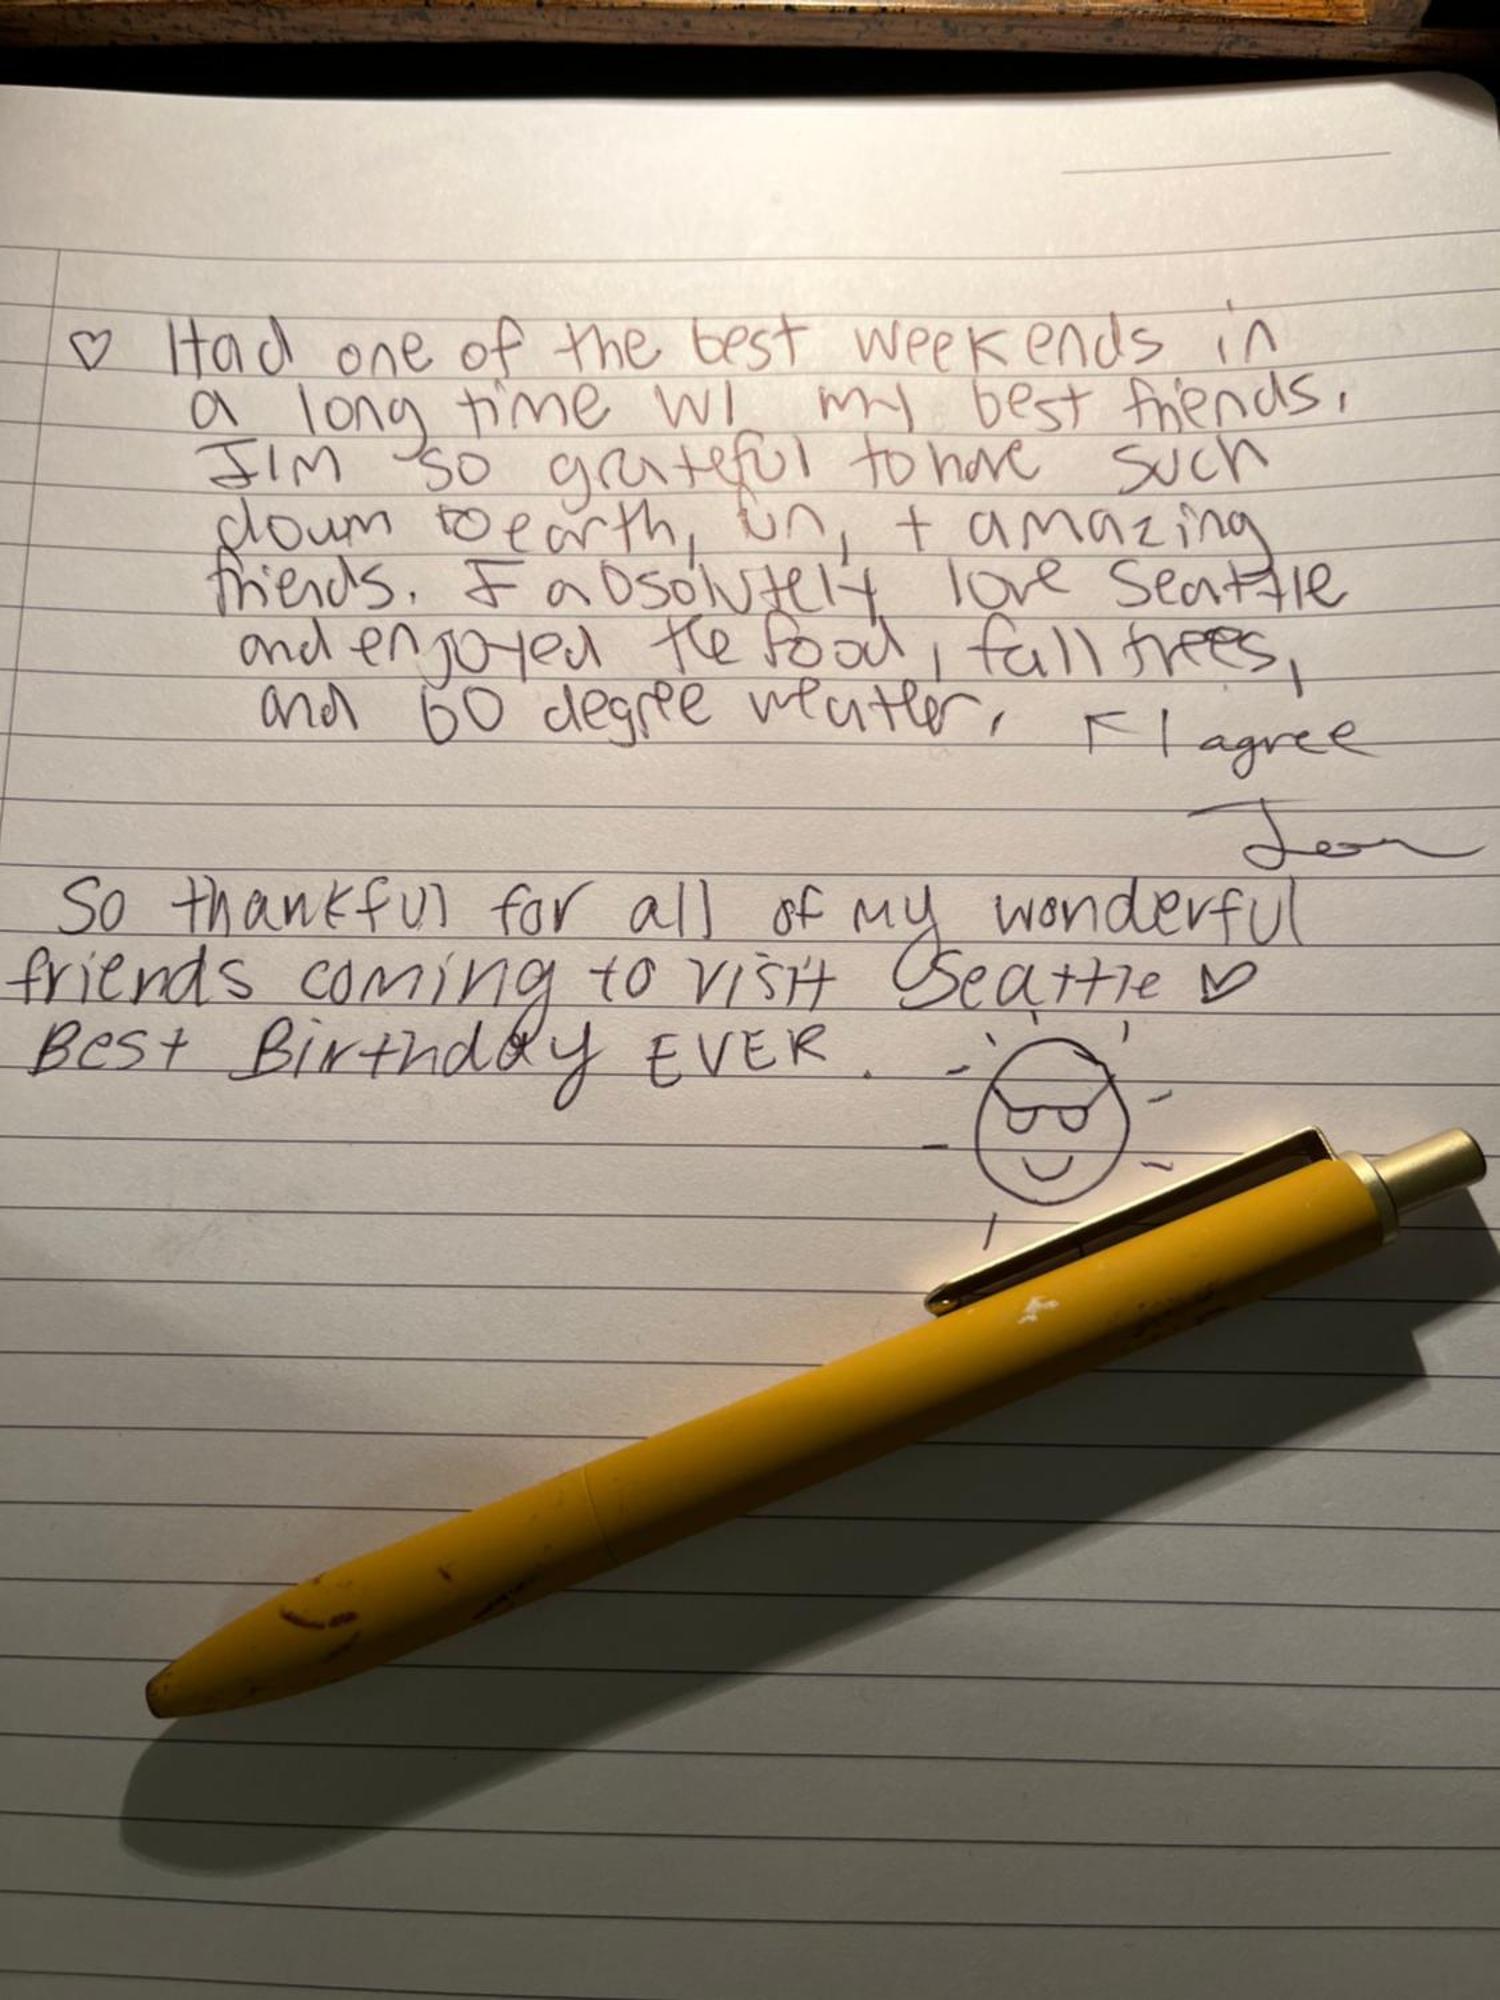 ♡ Had one of the best weekends in
a long time w/ my best friends.
I'm so grateful to have such
down to earth, fun, + amazing
friends. I absolutely love Seattle
and enjoyed the food, fall trees,
and 60 degree weather.
↖ I agree
So thankful for all of my wonderful
friends coming to visit Seattle ♡
Best Birthday EVER.